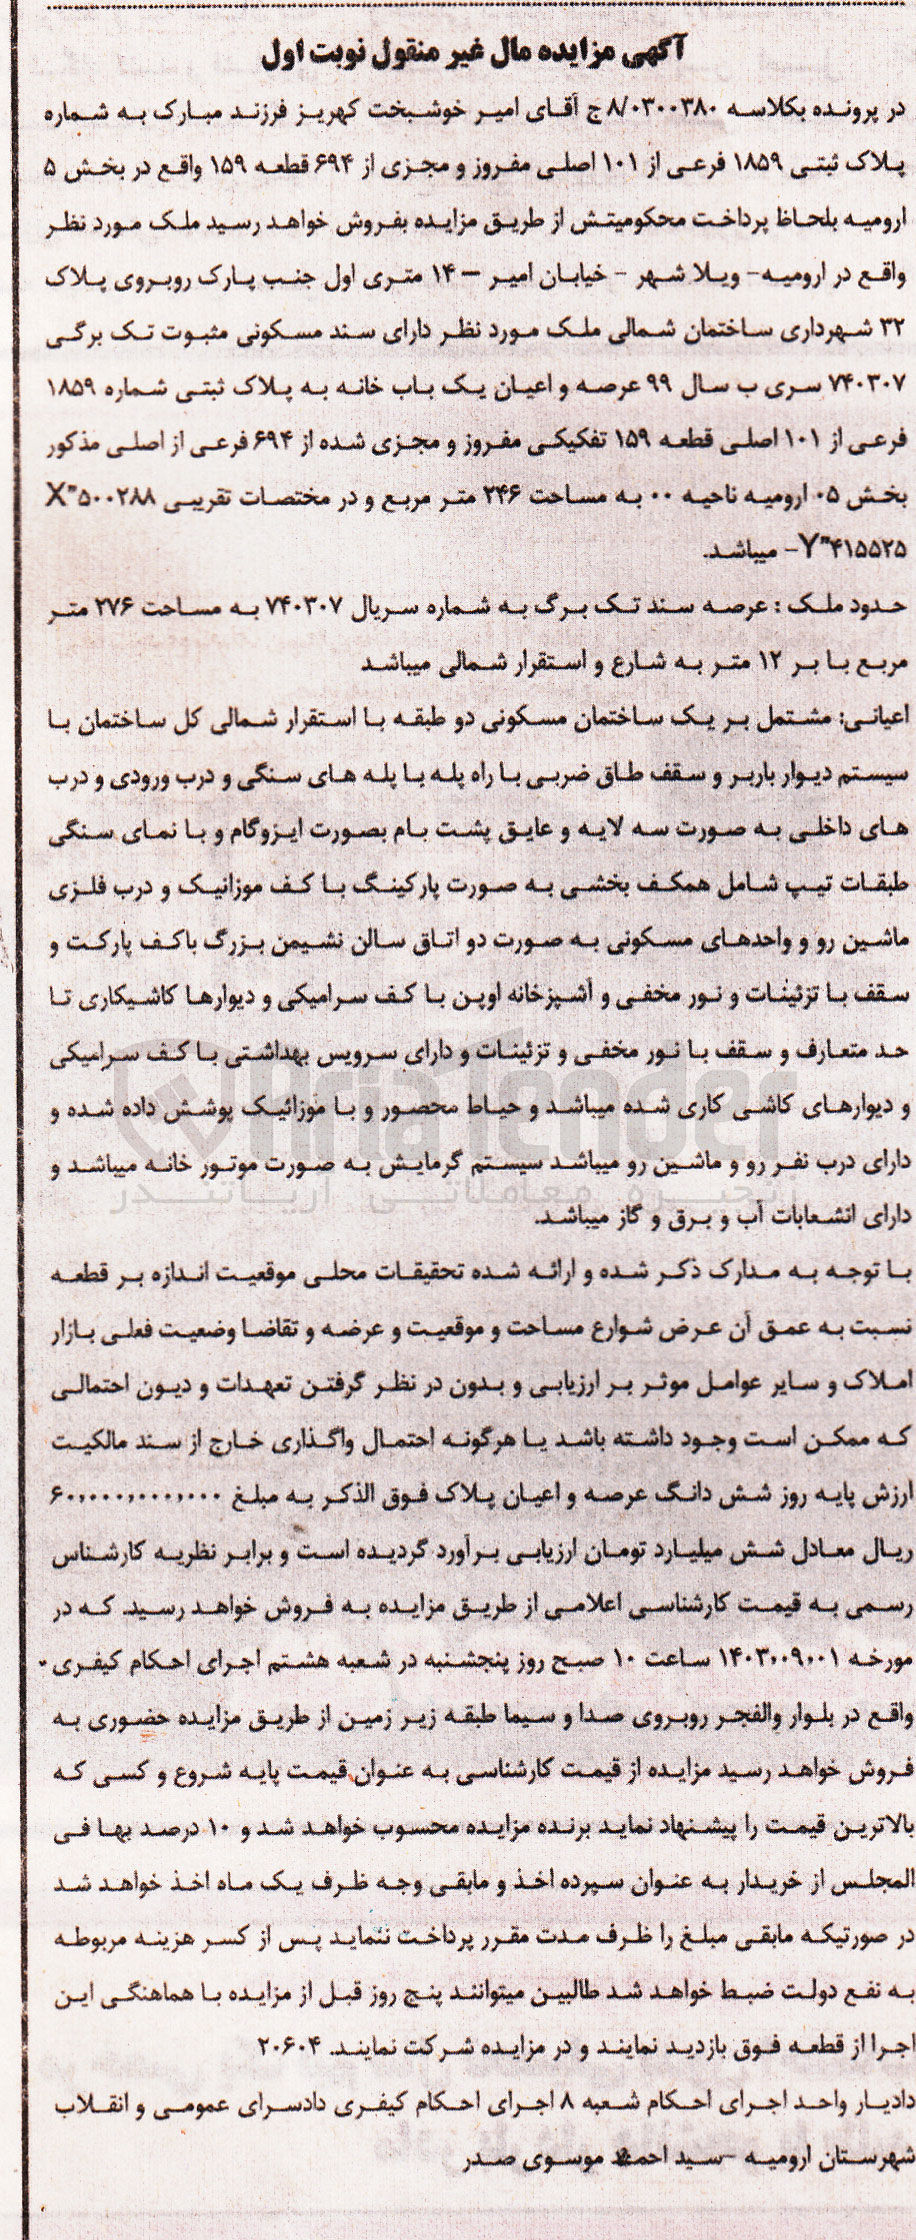 آگهی مزایده مال غیر منقول نوبت اول
در پرونده بکلاسه ۸/۰۳۰۰۳۸۰ ج آقای امیر خوشبخت کهریز فرزند مبارک به شماره
پلاک ثبتی ۱۸۵۹ فرعی از ۱۰۱ اصلی مفروز و مجزی از ۶۹۴ قطعه ۱۵۹ واقع در بخش ۵
ارومیه بلحاظ پرداخت محکومیتش از طریق مزایده بفروش خواهد رسید ملک مورد نظر
واقع در ارومیه- ویلا شهر - خیابان امیر – ۱۴ متری اول جنب پارک روبروی پلاک
۳۲ شهرداری ساختمان شمالی ملک مورد نظر دارای سند مسکونی مثبوت تک برگی
۷۴۰۳۰۷ سری ب سال ۹۹ عرصه و اعیان یک باب خانه به پلاک ثبتی شماره ۱۸۵۹
فرعی از ۱۰۱ اصلی قطعه ۱۵۹ تفکیکی مفروز و مجزی شده از ۶۹۴ فرعی از اصلی مذکور
بخش ۰۵ ارومیه ناحیه ۰۰ به مساحت ۲۴۶ متر مربع و در مختصات تقریبی X"۵۰۰۲۸۸
Y"۴۱۵۵۲۵- میباشد.
حدود ملک : عرصه سند تک برگ به شماره سریال ۷۴۰۳۰۷ به مساحت ۲۷۶ متر
مربع با بر ۱۲ متر به شارع و استقرار شمالی میباشد
اعیانی: مشتمل بر یک ساختمان مسکونی دو طبقه با استقرار شمالی کل ساختمان با
سیستم دیوار باربر و سقف طاق ضربی با راه پله با پله های سنگی و درب ورودی و درب
های داخلی به صورت سه لایه و عایق پشت بام بصورت ایزوگام و با نمای سنگی
طبقات تیپ شامل همکف بخشی به صورت پارکینگ با کف موزانیک و درب فلزی
ماشین رو و واحدهای مسکونی به صورت دو اتاق سالن نشیمن بزرگ باکف پارکت و
سقف با تزئینات و نور مخفی و آشپزخانه اوپن با کف سرامیکی و دیوارها کاشیکاری تا
حد متعارف و سقف با نور مخفی و تزئینات و دارای سرویس بهداشتی با کف سرامیکی
و دیوارهای کاشی کاری شده میباشد و حیاط محصور و با موزائیک پوشش داده شده و
دارای درب نفر رو و ماشین رو میباشد سیستم گرمایش به صورت موتور خانه میباشد و
دارای انشعابات آب و برق و گاز میباشد.
AriaTender
زنجیره معاملاتی آریاتندر
با توجه به مدارک ذکر شده و ارائه شده تحقیقات محلی موقعیت اندازه بر قطعه
نسبت به عمق آن عرض شوارع مساحت و موقعیت و عرضه و تقاضا وضعیت فعلی بازار
املاک و سایر عوامل موثر بر ارزیابی و بدون در نظر گرفتن تعهدات و دیون احتمالی
که ممکن است وجود داشته باشد یا هرگونه احتمال واگذاری خارج از سند مالکیت
ارزش پایه روز شش دانگ عرصه و اعیان پلاک فوق الذکر به مبلغ ۶۰,۰۰۰,۰۰۰,۰۰۰
ریال معادل شش میلیارد تومان ارزیابی برآورد گردیده است و برابر نظریه کارشناس
رسمی به قیمت کارشناسی اعلامی از طریق مزایده به فروش خواهد رسید. که در
مورخه ۱۴۰۳,۰۹,۰۱ ساعت ۱۰ صبح روز پنجشنبه در شعبه هشتم اجرای احکام کیفری
واقع در بلوار والفجر روبروی صدا و سیما طبقه زیر زمین از طریق مزایده حضوری به
فروش خواهد رسید مزایده از قیمت کارشناسی به عنوان قیمت پایه شروع و کسی که
بالاترین قیمت را پیشنهاد نماید برنده مزایده محسوب خواهد شد و ۱۰ درصد بها فی
المجلس از خریدار به عنوان سپرده اخذ و مابقی وجه ظرف یک ماه اخذ خواهد شد
در صورتیکه مابقی مبلغ را ظرف مدت مقرر پرداخت ننماید پس از کسر هزینه مربوطه
به نفع دولت ضبط خواهد شد طالبین میتوانند پنج روز قبل از مزایده با هماهنگی این
اجرا از قطعه فوق بازدید نمایند و در مزایده شرکت نمایند. ۲۰۶۰۴
دادیار واحد اجرای احکام شعبه ۸ اجرای احکام کیفری دادسرای عمومی و انقلاب
شهرستان ارومیه –سید احمد موسوی صدر